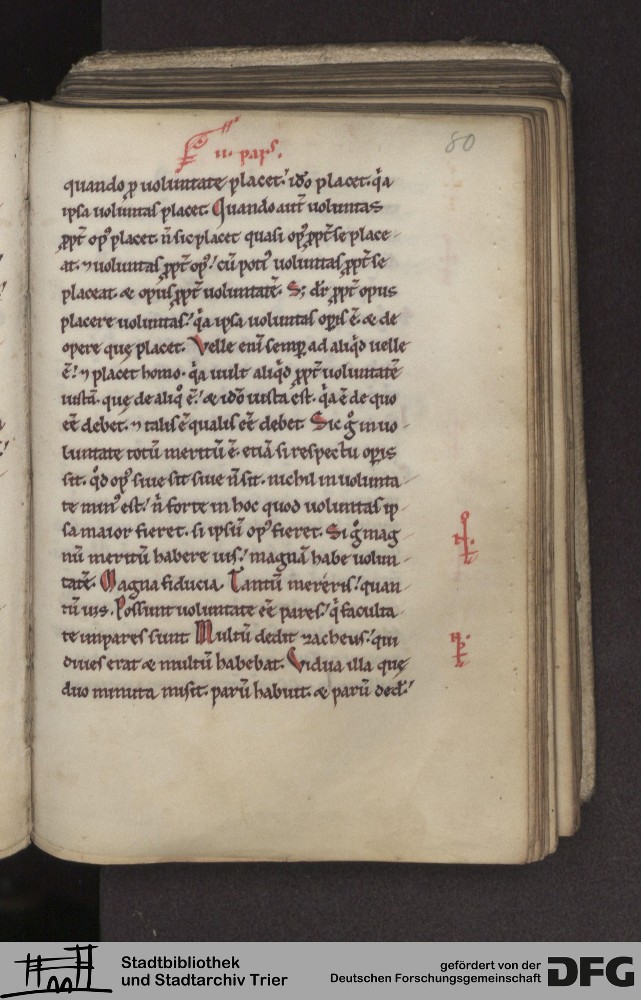 II. pars.
80
quando ꝑ uoluntate placet. iđo placet. q̃a
ipsa uoluntas placet. Quando aut̃ uoluntas
ꝓpt̃ opꝰ placet. ñ sic placet quasi opꝰ ꝓpt̃ se place
at. ⁊ uoluntas ꝓpt̃ opꝰ. cũ potiꝰ uoluntas ꝓpt̃ se
placeat. & opus ꝓpt̃ uoluntatẽ. S; dr̃ ꝓpt̃ opus
placere uoluntas. q̃a ipsa uoluntas oꝑis ẽ. & de
opere quę placet. Velle eni͂ semꝑ ad aliq̃d uelle
ẽ. ⁊ placet homo. q̃a uult aliq̃d ꝓpt̃ uoluntatẽ
iustã. quę de aliq̊ ẽ. & iđo iusta est. q̃a ẽ de quo
eẽ debet. ⁊ talis ẽ qualis eẽ debet. Sic g̊ in uo
luntate totũ meritũ ẽ. etiã si respectu oꝑis
sit. q̃d opꝰ siue sit siue ñ sit. nichil in uolunta
te minꝰ est. ñ forte in hoc quod uoluntas ip
sa maior fieret. si ipsũ opꝰ fieret. Si g̊ mag
nũ meritũ habere uis. magnã habe uolun
tatẽ. Magna fiducia. Tantũ mereris. quan
tũ uis. Possunt uoluntate eẽ pares. q̃ faculta
te impares sunt. Multũ dedit zacheus. qui
diues erat & multũ habebat. Vidua illa quę
duo minuta misit. parũ habuit. & parũ ded̃.
Stadtbibliothek
und Stadtarchiv Trier
gefördert von der
Deutschen Forschungsgemeinschaft
DFG